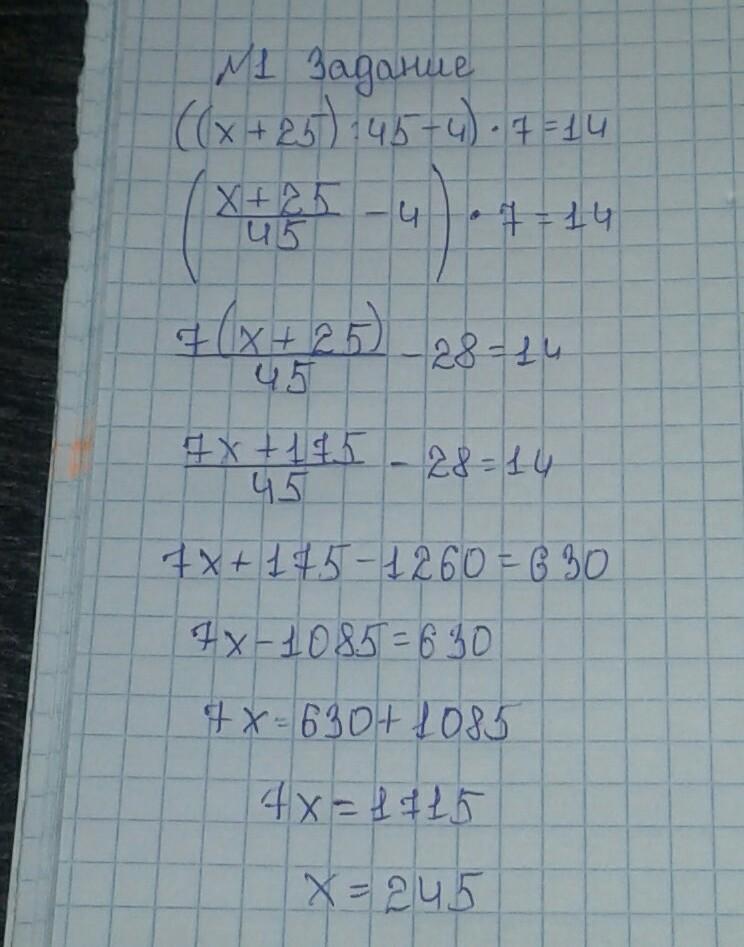 №1 Задание
((x+25):45-4)·7=14
(x+25/45 -4)·7=14
7(x+25)/45 -28=14
7x+175/45 -28=14
7x+175-1260=630
7x-1085=630
7x=630+1085
7x=1715
x=245